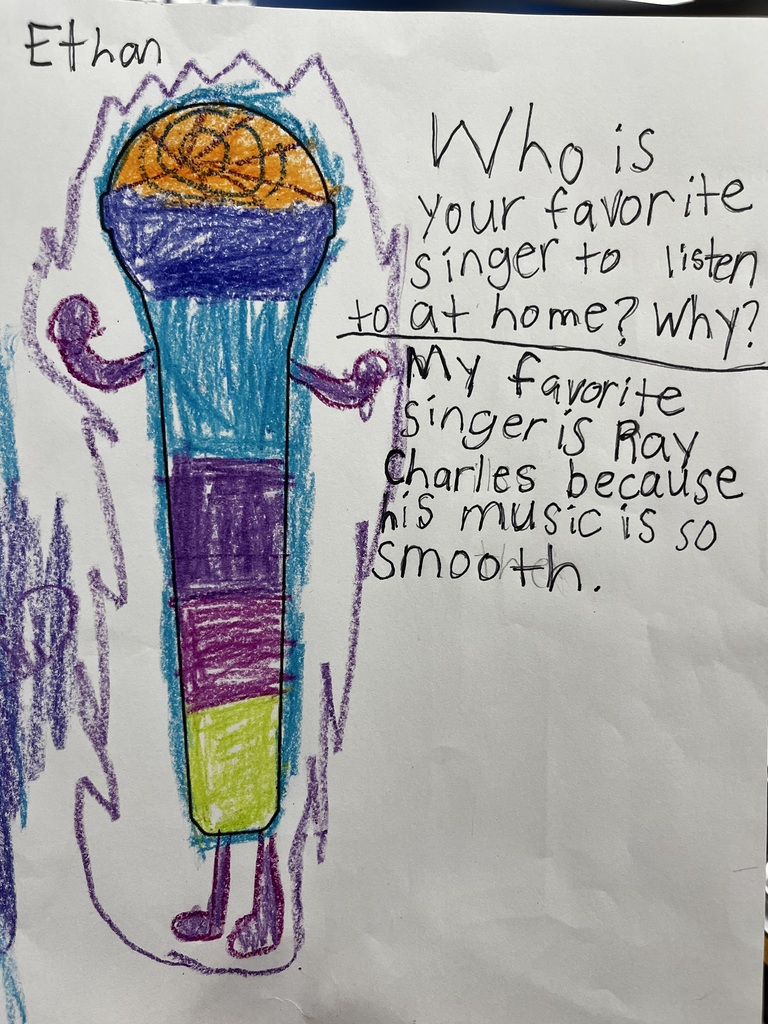 Ethan
Who is
your favorite
singer to listen
to at home? Why?
My favorite
singer is Ray
Charles because
his music is so
smooth.